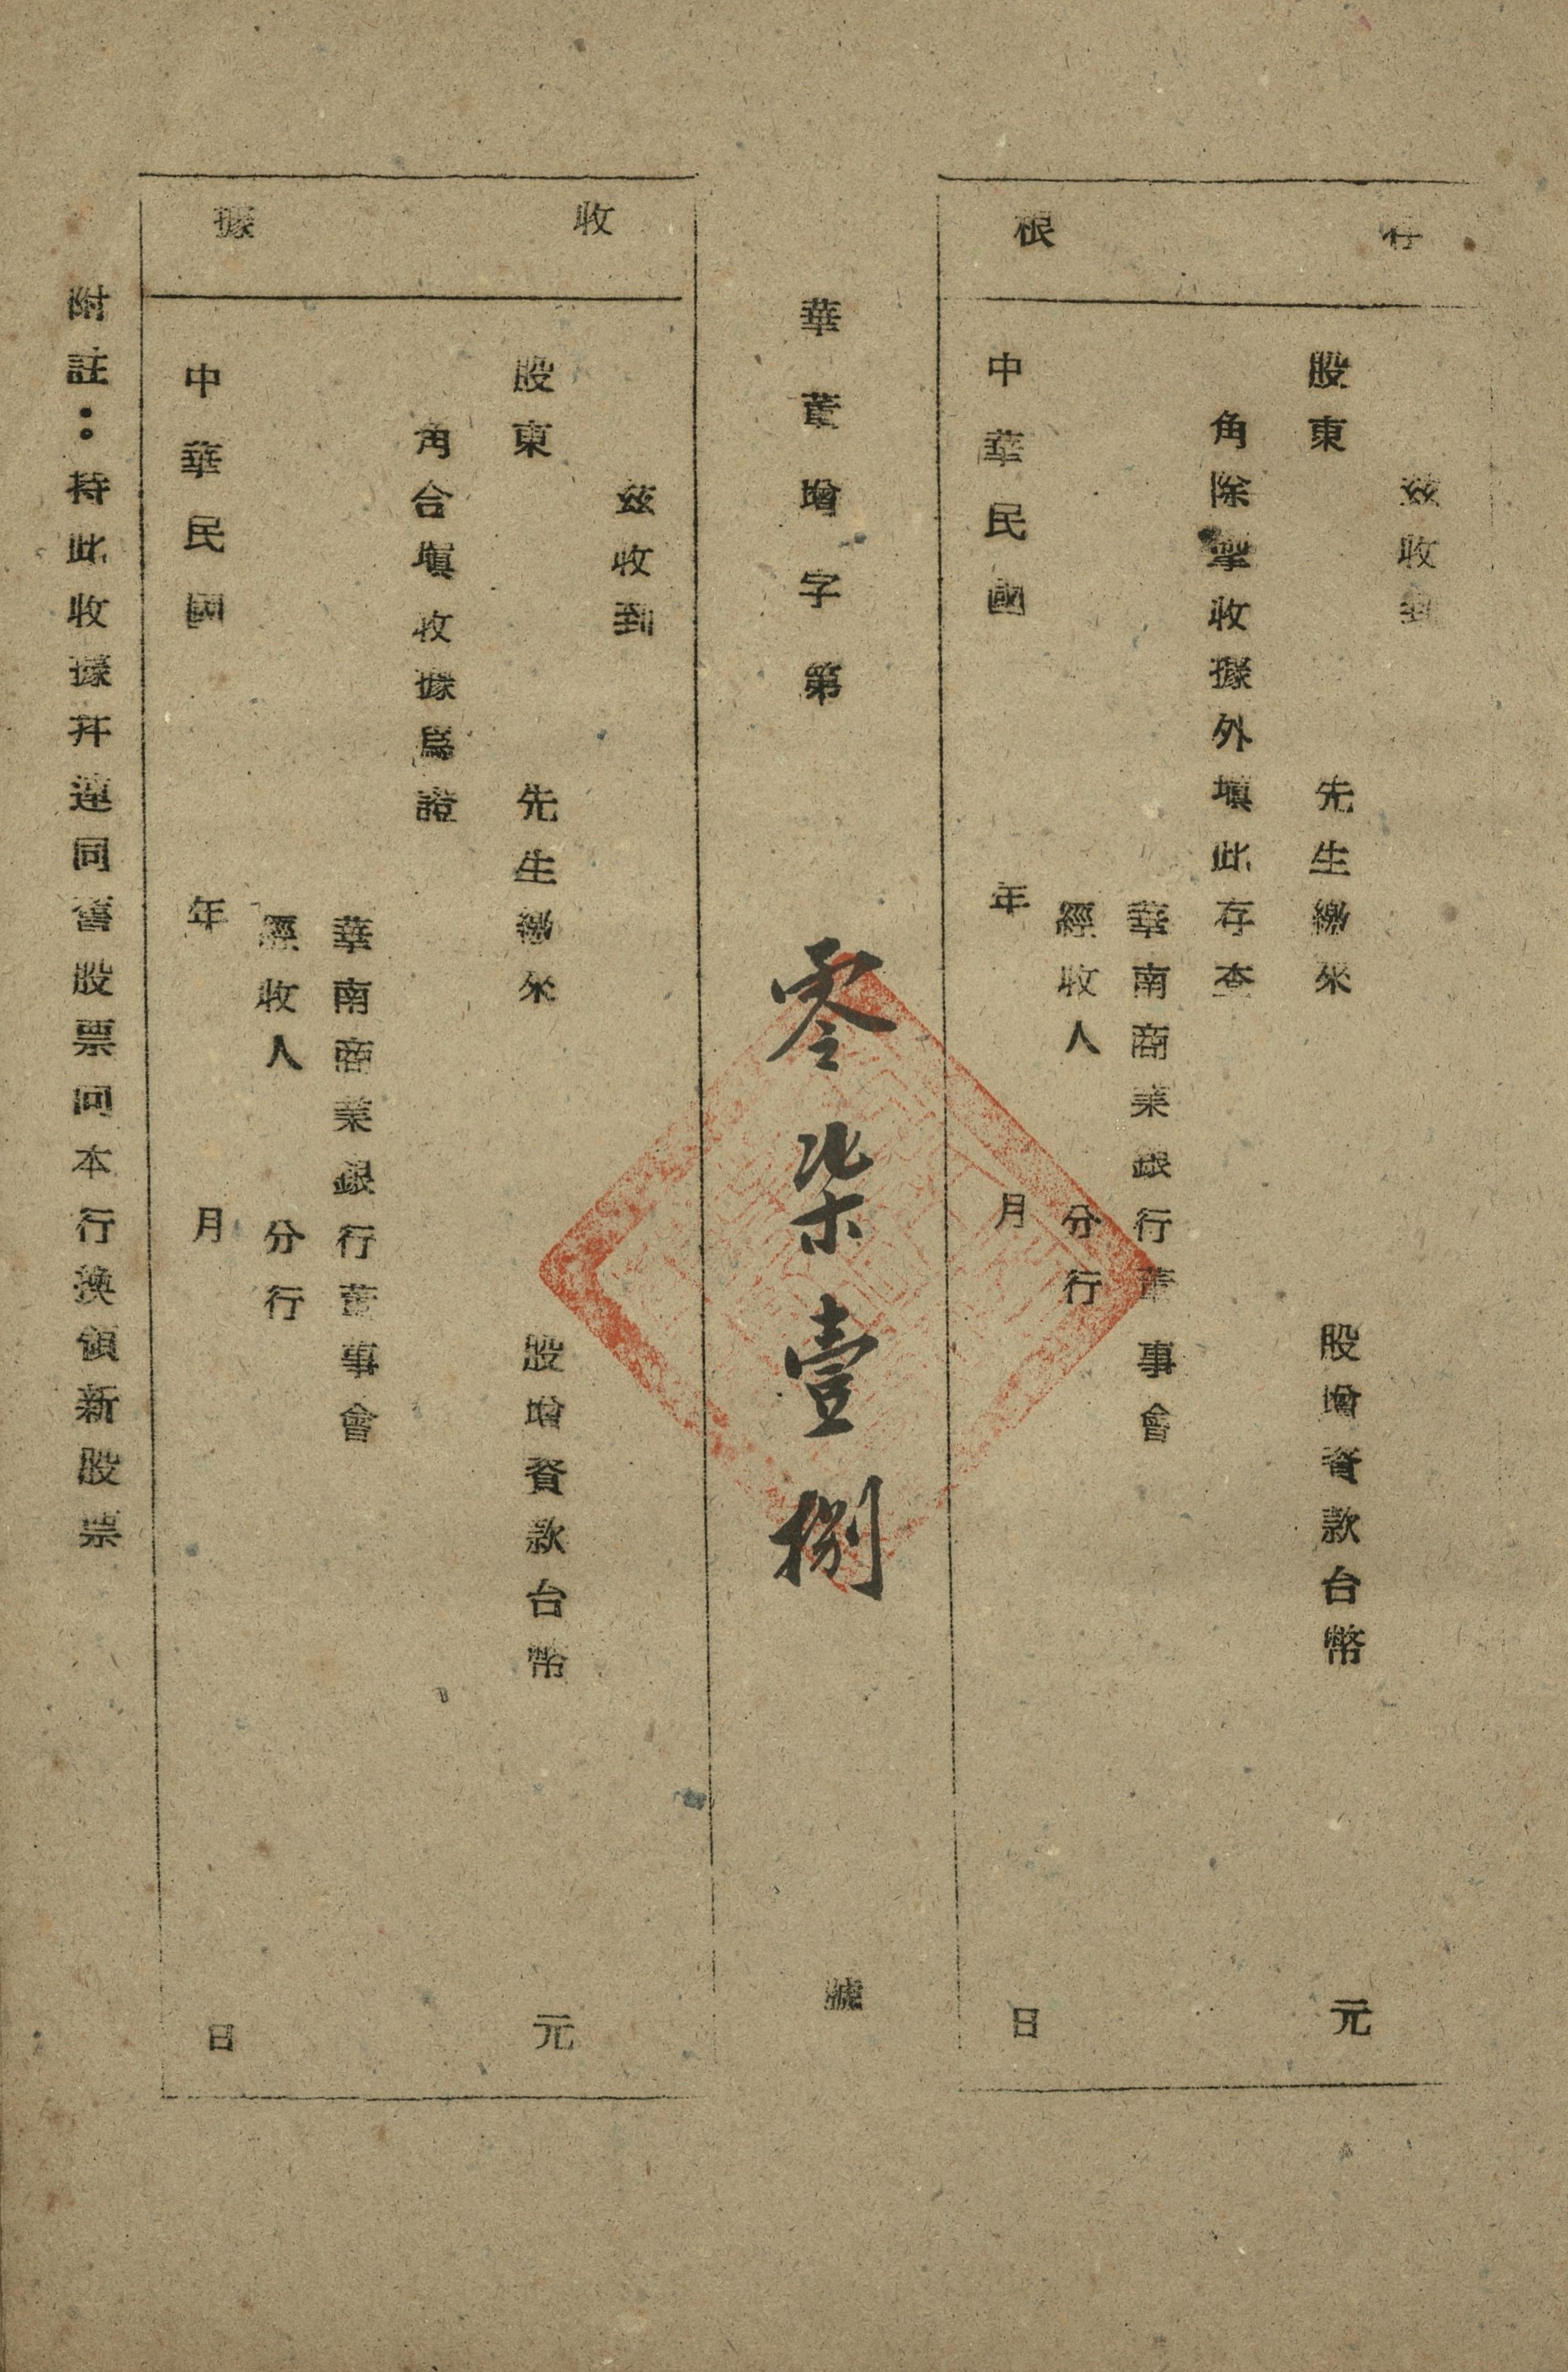 存根
茲收到
股東 先生繳來 股增資款台幣 元
角除掣收據外塡此存查
華南商業銀行董事會
經收人 分行
中華民國 年 月 日
華董增字第 零柒壹捌 號
收據
茲收到
股東 先生繳來 股增資款台幣 元
角合塡收據爲證
華南商業銀行董事會
經收人 分行
中華民國 年 月 日
附註：持此收據并連同舊股票向本行換領新股票